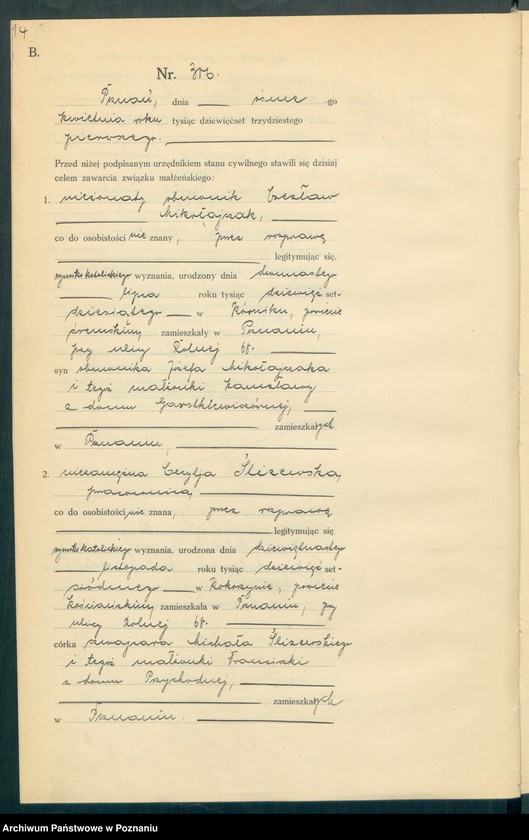 14
B.
Nr. 316.
Poznań, dnia ósme go
kwietnia roku tysiąc dziewięćset trzydziestego
pierwszego.
Przed niżej podpisanym urzędnikiem stanu cywilnego stawili się dzisiaj
celem zawarcia związku małżeńskiego:
1. nieżonaty obuwnik Czesław
Mikołajczak,
co do osobistości nie znany, przez rozprawę
legitymując się,
rzymsko katolickiego wyznania, urodzony dnia
lipca roku tysiąc dziewięć set-
dziesiątego w Kórniku, powiecie
śremskim, zamieszkały w Poznaniu,
przy ulicy Rolnej 68.
syn obuwnika Józefa Mikołajczaka
i tegoż małżonki Konstancy
z domu
zamieszkałych
w Poznaniu,
2. niezamężna Cecylja Śliszewska,
pracownica,
co do osobistości nie znana, przez rozprawę
legitymując się
rzymsko katolickiego wyznania, urodzona dnia dziewiętnastego
listopada roku tysiąc dziewięć set-
siódmego w Rokoszynie, powiecie
kościańskim, zamieszkała w Poznaniu, przy
ulicy Rolnej 68.
córka szwajcara Michała Śliszewskiego
i tegoż małżonki Franciszki
z domu Przychodnej,
zamieszkałych
w Poznaniu.
Archiwum Państwowe w Poznaniu